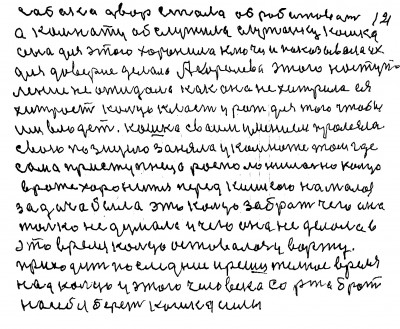 собака двор стала обработоват 12
а комнату обслужила служанку кошка
сена для этого хоронила ключи и показывала их
для доверие делало Акоралева этого поступ
ление не ожидала как она не хитрила ея
хитрост колцо кладет у рот для того чтобы
им владет. кошка своим умением провела
свою позицию заняла у комнате том где
сама преступнецо росположилас но колцо
вроте хоронится перед кишкою насталоя
задача была это колцо забрат чего она
толко не думала и чего она не делола в
это время колцо оставалос у ворту.
приходит последние и решителное время
над колцо у этого человека со рта брат
на себя берет кошка силы